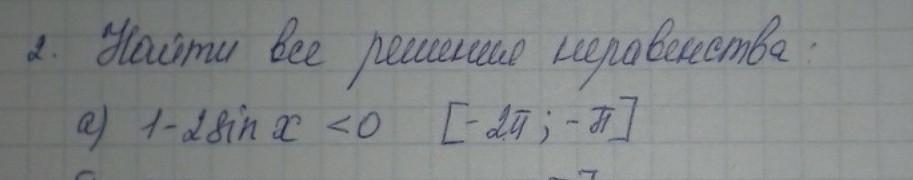 2. Найти все решения неравенства:
а) 1-2sin x <0 [-2π; -π]